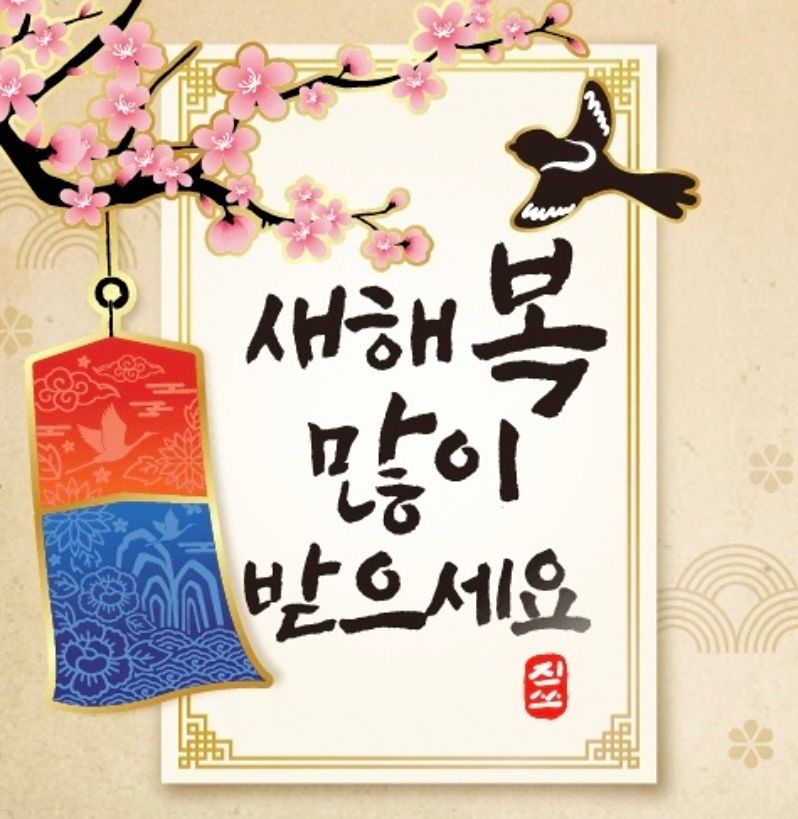 새해 복
많이
받으세요
진쓰